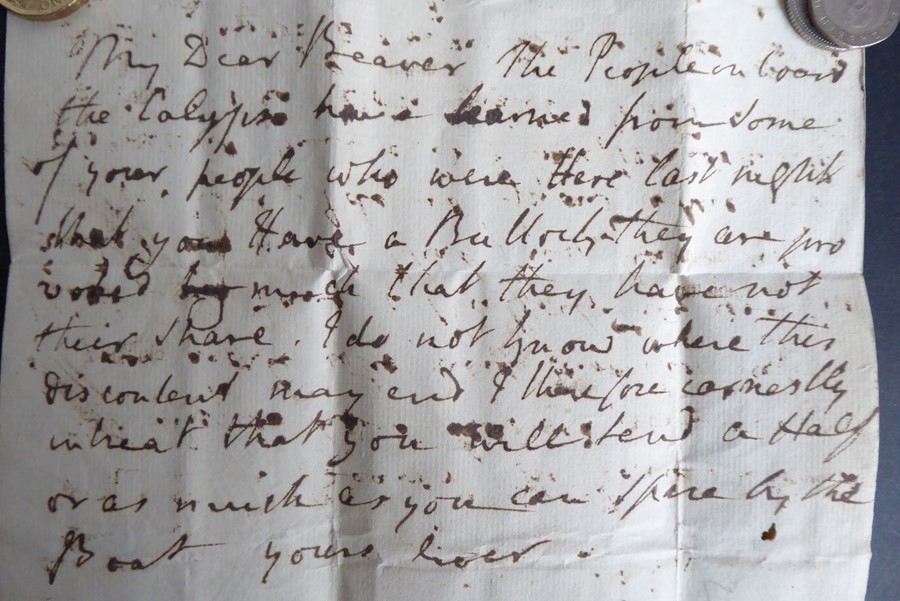 My Dear Beaver the People on board
the Calypso have learned from some
of your people who were Here last night
that you Have a Bullock they are pro
voked so much that they have not
their share. I do not know where this
discontent may end I therefore earnestly
intreat that you will send a Half
or as much as you can spare by the
Boat yours ever